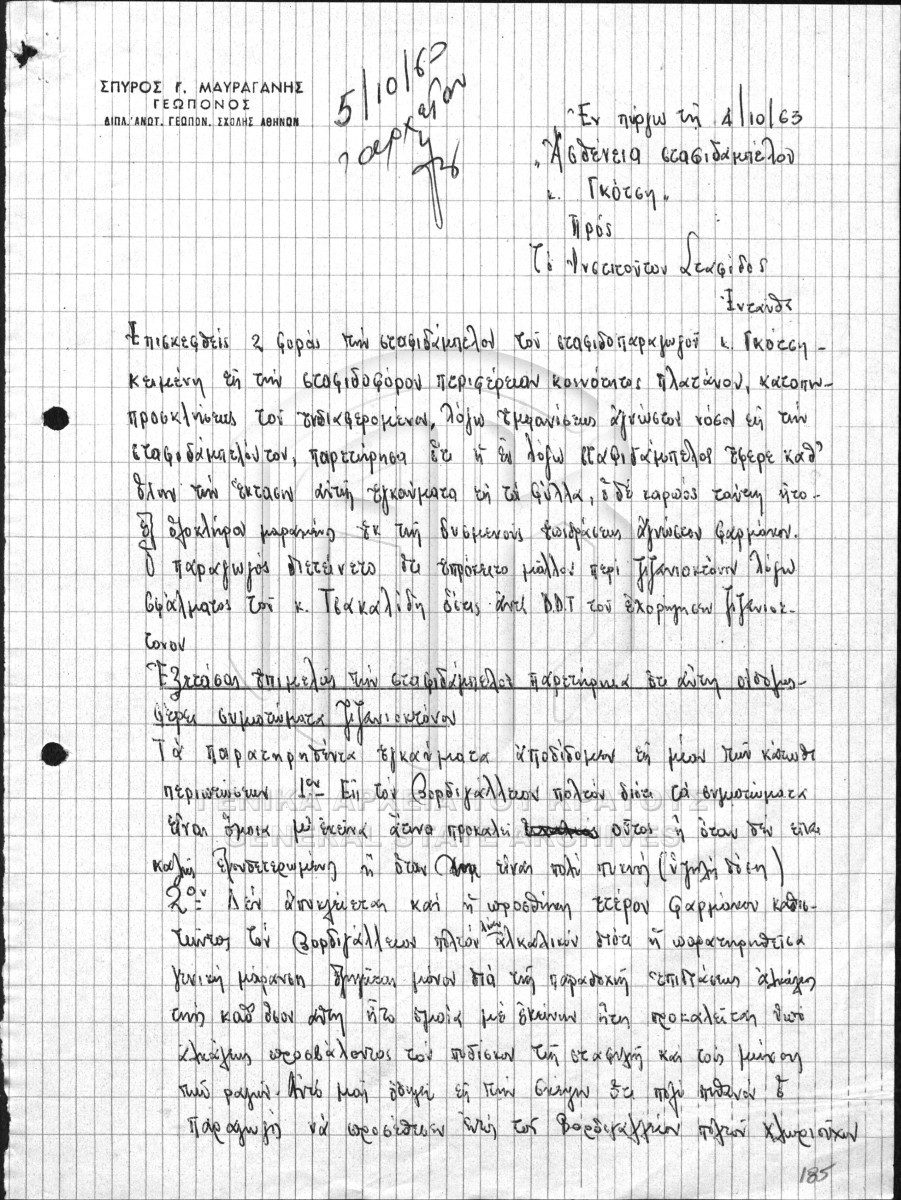 ΣΠΥΡΟΣ Γ. ΜΑΥΡΑΓΑΝΗΣ
ΓΕΩΠΟΝΟΣ
ΔΙΠΛ. ΑΝΩΤ. ΓΕΩΠΟΝ. ΣΧΟΛΗΣ ΑΘΗΝΩΝ
5/10/63
Ἀρχεῖον
Ἐν πύργῳ τῇ 4/10/63
"Ἀσθένεια σταφιδάμπελου
κ. Γκότση"
Πρός
Τό Ἰνστιτοῦτον Σταφίδος
Ἐνταῦθα
Ἐπισκεφθείς 2 φοράς τήν σταφιδάμπελον τοῦ σταφιδοπαραγωγοῦ κ. Γκότση
κειμένη εἰς τήν σταφιδοφόρον περιφέρειαν κοινότητος Πλατάνου, κατόπιν
προσκλήσεως τοῦ ἐνδιαφερομένου, λόγῳ ἐμφανίσεως ἀγνώστου νόσου εἰς τήν
σταφιδάμπελόν του, παρετήρησα ὅτι ἡ ἐν λόγῳ σταφιδάμπελος ἔφερε καθ'
ὅλην τήν ἔκτασιν αὐτῆς ἐγκαύματα εἰς τά φύλλα, ὁ δέ καρπός ταύτης ἦτο
ἐξ ὁλοκλήρου μαραμένος ἐκ τῆς δυσμενοῦς ἐπιδράσεως ἀγνώστου φαρμάκου.
Ὁ παραγωγός διετείνετο ὅτι ἐπρόκειτο μᾶλλον περί ζιζανιοκτόνου λόγῳ
σφάλματος τοῦ κ. Τσακαλίδη ὅστις ἀντί D.D.T τοῦ ἐχορήγησεν ζιζανιοκ-
τόνον
Ἐξετάσας ἐπιμελῶς τήν σταφιδάμπελον παρετήρησα ὅτι αὕτη οὐδόλως
φέρει συμπτώματα ζιζανιοκτόνου
Τά παρατηρηθέντα ἐγκαύματα ἀποδίδομεν εἰς μίαν τῶν κάτωθι
περιπτώσεων 1ον Εἰς τόν βορδιγάλλειον πολτόν διότι τά συμπτώματα
εἶναι ὅμοια μέ ἐκεῖνα ἅτινα προκαλεῖ οὗτος ἤ ὅταν δέν εἶναι
καλῶς ἐξουδετερωμένος ἤ ὅταν εἶναι πολύ πυκνός (ὑψηλή δόση)
2ον Δέν ἀποκλείεται καί ἡ προσθήκη ἑτέρου φαρμάκου καθισ-
τῶντος τόν βορδιγάλλειον πολτόν λίαν ἀλκαλικόν διότι ἡ παρατηρηθεῖσα
γενική μάρανση ἐξηγεῖται μόνον διά τῆς παραδοχῆς ἐπιδράσεως
καθ' ὅσον αὕτη ἦτο ὁμοία μέ ἐκείνην ἥτις προκαλεῖται ὑπό
προσβάλοντος τόν ποδίσκον τῆς σταφυλῆς καί τούς μίσχους
τῶν ραγῶν. Αὐτό μᾶς ὁδηγεῖ εἰς τήν σκέψιν ὅτι πολύ πιθανόν ὁ
παραγωγός νά προσέθεσεν ἐντός τοῦ βορδιγαλλείου πολτοῦ χλωριοῦχον
ΓΕΝΙΚΑ ΑΡΧΕΙΑ ΤΟΥ ΚΡΑΤΟΥΣ
GENERAL STATE ARCHIVES
185